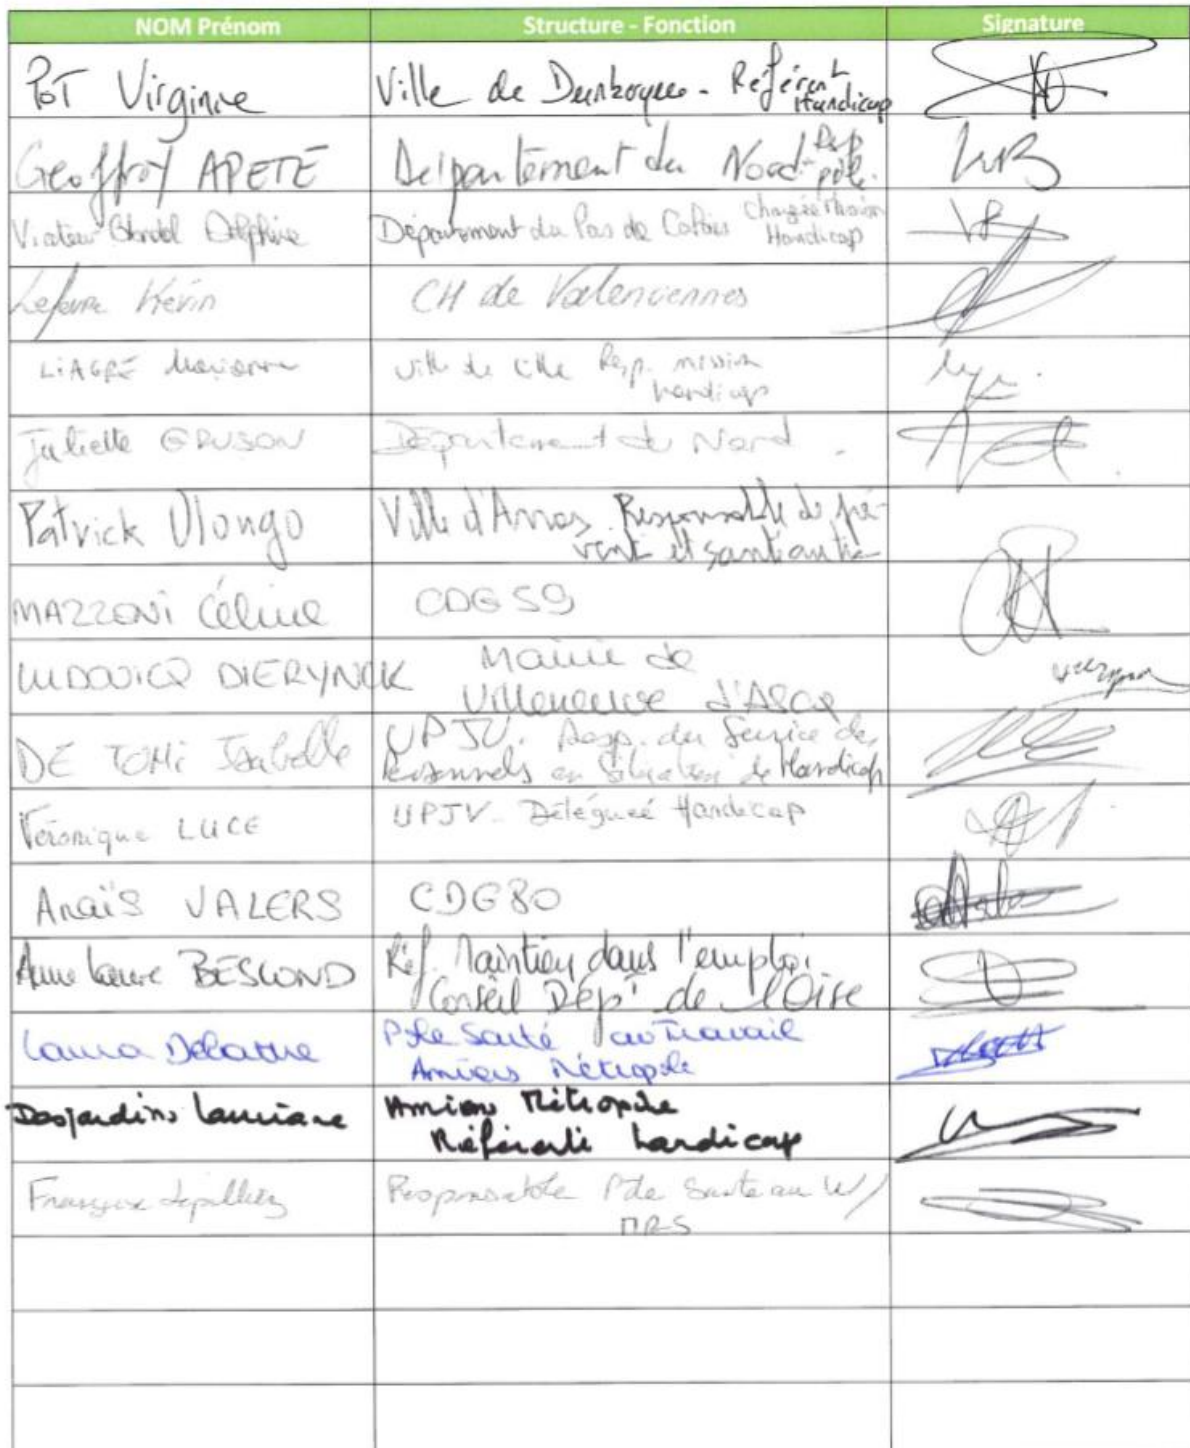 NOM Prénom Structure - Fonction Signature
POT Virginie Ville de Dunkerque - Référent
Handicap
Geoffroy APETE Département du Nord Resp
pôle.
Viateur Blondel Delphine Département du Pas de Calais Chargée Mission
Handicap
Lefevre Kévin CH de Valenciennes
LIAGRE Marianne Ville de Lille Resp. mission
handicap
Juliette GRUSON Département du Nord
Patrick Ulongo Ville d'Arras Responsable de pré-
vent et santé au
MAZZONi Céline CDG 59
LUDOVICQ DIERYNCK Mairie de
Villeneuve d'Ascq
DE TOMi Isabelle UPJV. Resp. du Service des
Personnels en Situation de Handicap
Véronique LUCE UPJV - Déléguée Handicap
Anaïs VALERS CDG80
Anne Laure BESCOND Réf. Maintien dans l'emploi
Conseil Dépt de l'Oise
Laura Pôle Santé au Travail
Amiens Métropole
Desjardins Amiens Métropole
Référente handicap
Responsable Pôle Santé au W/